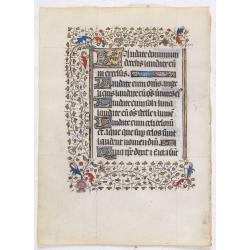 Laudate dominum
de celis laudate eum
in excelsis.
Laudate eum om̄s angeli
eius laudate eum om̄s
Laudate eum sol et luna
laudate eum om̄s stelle et lumē
Laudate eum celi celorū
et aque que sup celos sunt
laudent nomen dn̄i
Quia ip̄e dixit et facta sūt